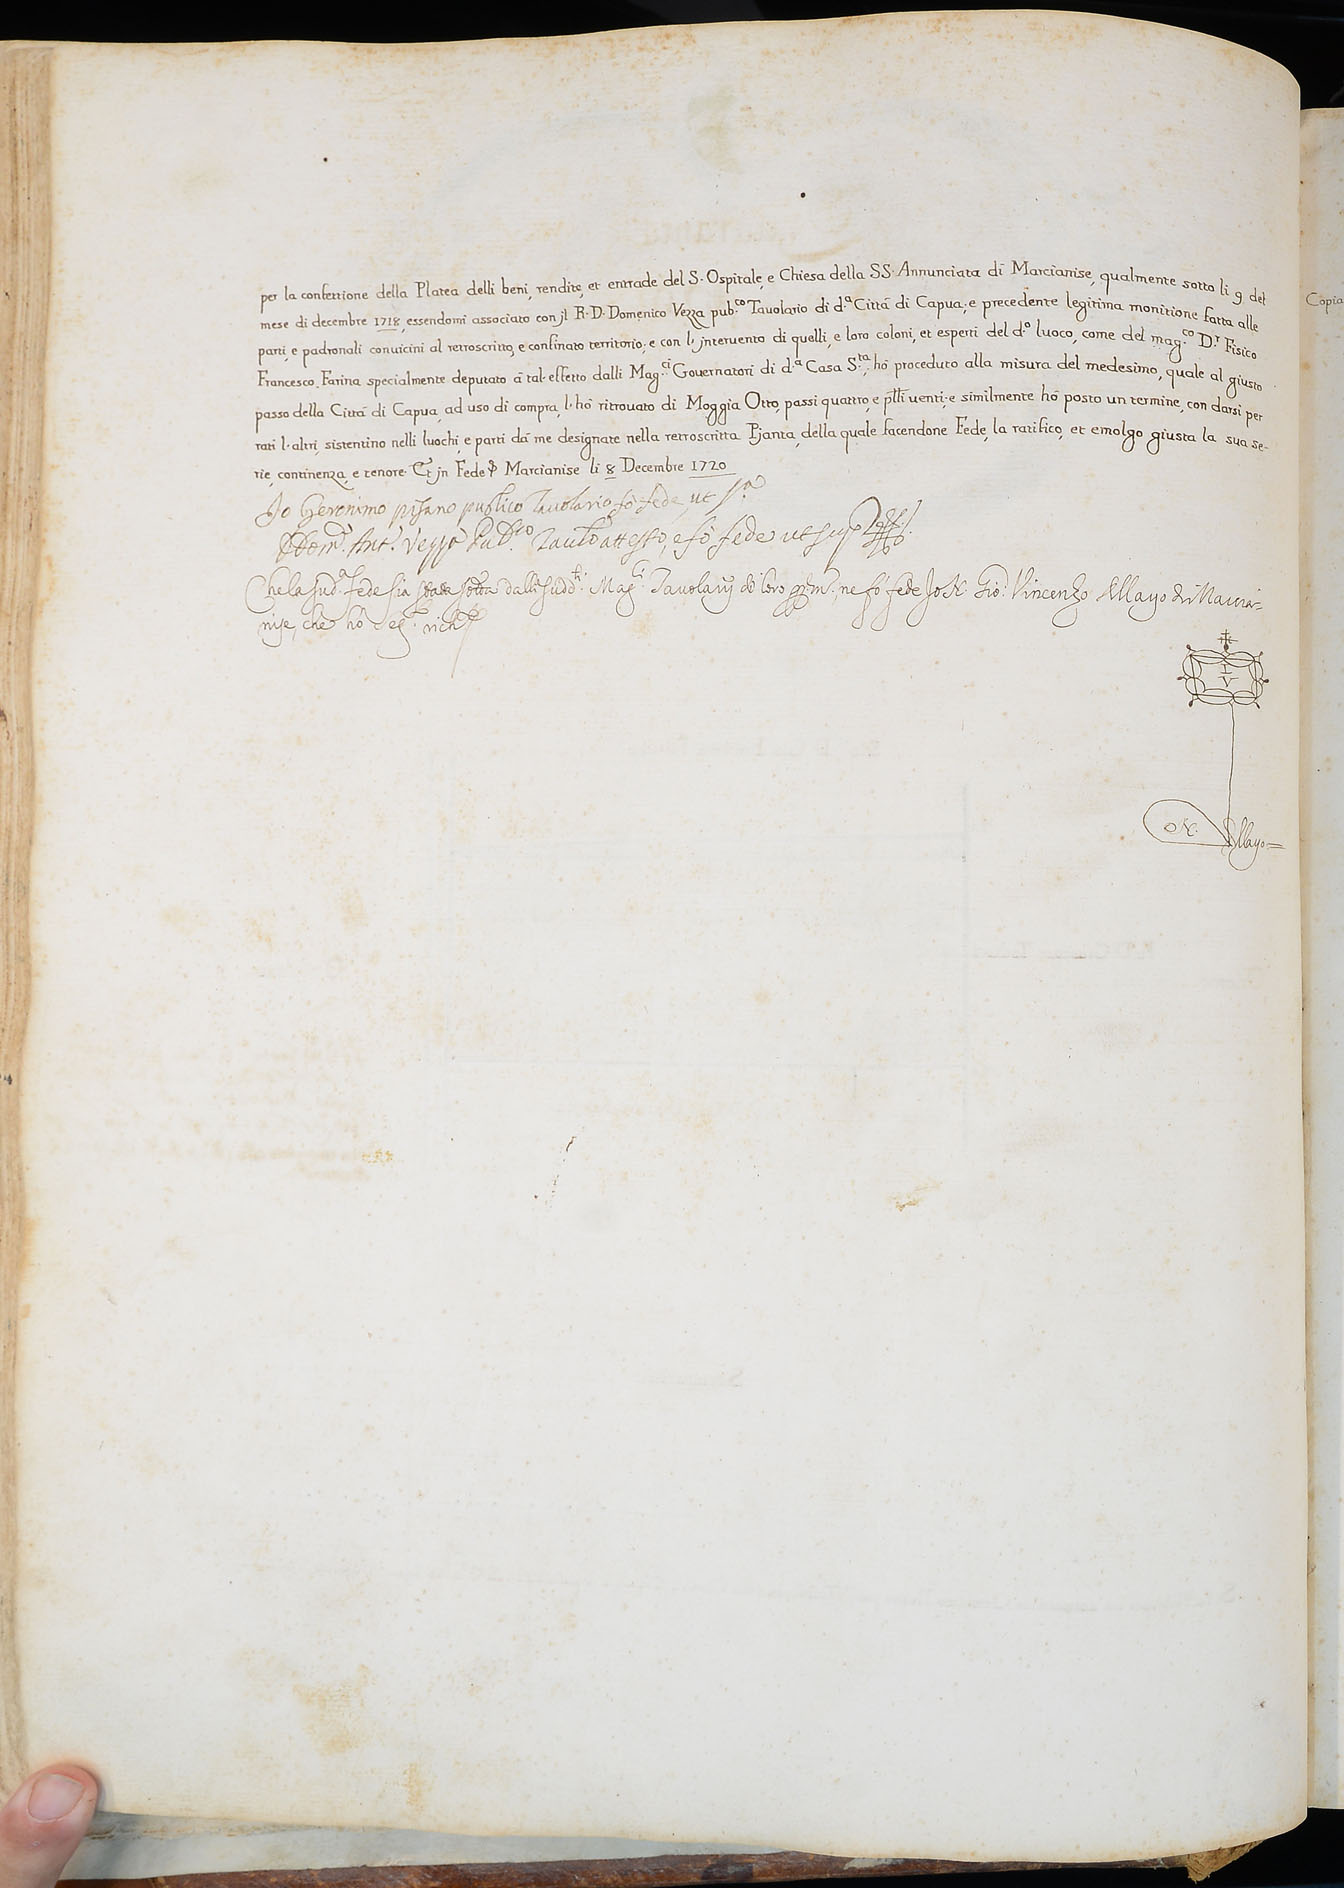 per la confettione della Platea delli beni, rendite, et entrade del S. Ospitale, e Chiesa della SS. Annunciata di Marcianise, qualmente sotto li 9 del
mese di decembre 1718, essendomi associato con jl R. D. Domenico Vezza pub.co Tauolario di d.a Città di Capua, e precedente legitima monitione fatta alle
parti, e padronali conuicini al retroscritto, e confinato territorio, e con l'jnteruento di quelli, e loro coloni, et esperti del d.o luoco, come del mag.co D.r Fisico
Francesco Farina specialmente deputato à tal effetto dalli Mag.ci Gouernatori di d.a Casa S.ta, hò proceduto alla misura del medesimo, quale al giusto
passo della Città di Capua, ad uso di compra, l'hò ritrouato di Moggia Otto, passi quattro, e p̄tti uenti, e similmente hò posto un termine, con darsi per
rati l'altri, sistentino nelli luochi, e parti dà me designate nella retroscritta Pjanta, della quale facendone Fede, la ratifico, et emolgo giusta la sua se-
rie, continenza, e tenore. Et jn Fede Marcianise li 8 Decembre 1720
Jo Geronimo pisano publico Tauolario fò fede, ut s.a
D. Dom.o Ant.o Vezza Pub.co Tauol.o attesto, e fò fede ut sup.a
Che la sud.a fede sia stata sotta dalli sudd.ti Mag.ci Tauolarij di loro pp.e m.i, ne fò fede Jo N. Gio: Vincenzo Allayo di Marcia=
nise, che hò seg.to rich.to
I
V
N. Allayo=
Copia